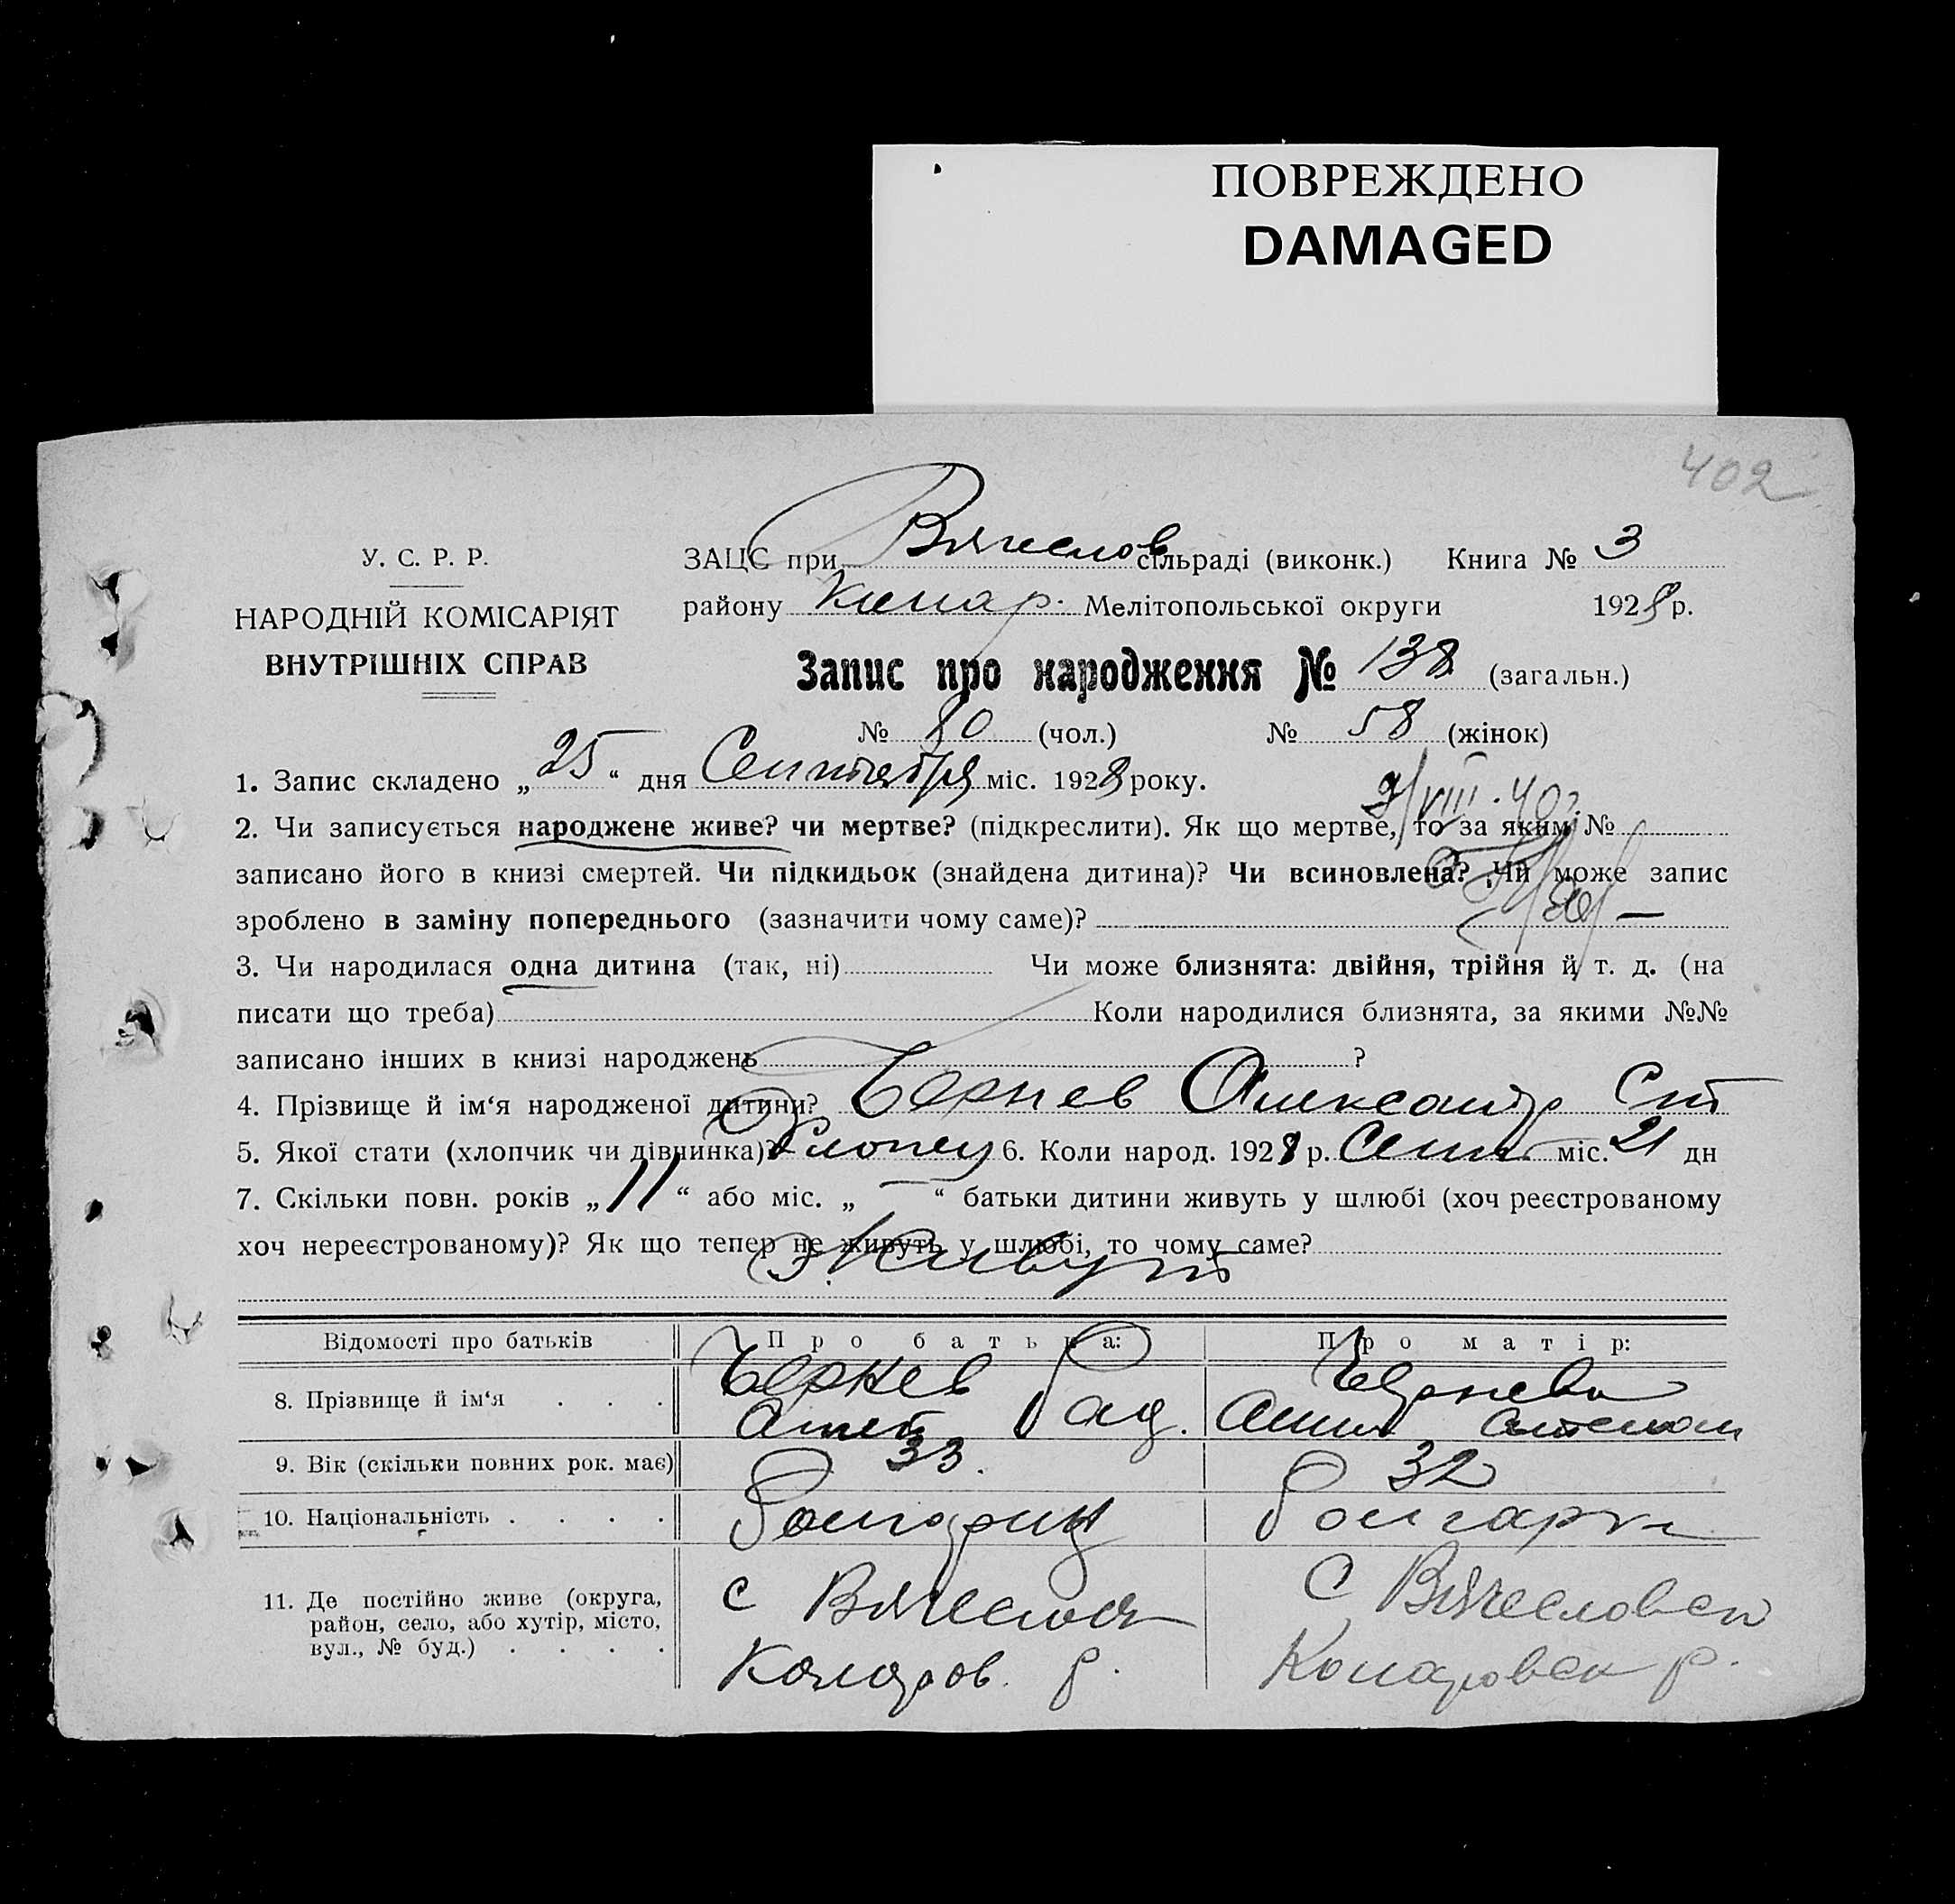 ПОВРЕЖДЕНО
DAMAGED
402
У. С. Р. Р.
НАРОДНІЙ КОМІСАРІЯТ
ВНУТРІШНІХ СПРАВ
ЗАЦС при Вячеслов сільраді (виконк.) Книга № 3
району Мелітопольської округи 1928 р.
Запис про народження № 138 (загальн.)
№ 80 (чол.) № 58 (жінок)
1. Запис складено „25“ дня Сентября міс. 1928 року.
2. Чи записується народжене живе? чи мертве? (підкреслити). Як що мертве, то за яким №
записано його в книзі смертей. Чи підкидьок (знайдена дитина)? Чи всиновлена? Чи може запис
зроблено в заміну попереднього (зазначити чому саме)? —
3. Чи народилася одна дитина (так, ні) Чи може близнята: двійня, трійня й т. д. (на
писати що треба) Коли народилися близнята, за якими №№
записано інших в книзі народжень ?
4. Прізвище й ім‘я народженої дитини? Чернев Александр Ст
5. Якої стати (хлопчик чи дівчинка)? Хлопец 6. Коли народ. 1928 р. Сент міс. 21 дн
7. Скільки повн. років „11“ або міс. „—“ батьки дитини живуть у шлюбі (хоч реєстрованому
хоч нереєстрованому)? Як що тепер не живуть у шлюбі, то чому саме?
Живут
Відомості про батьків Про батька: Про матір:
8. Прізвище й ім‘я . . . Чернев Чернева
Анна
9. Вік (скільки повних рок. має) 33. 32
10. Національність . . . . Болгарин Болгарка
11. Де постійно живе (округа,
район, село, або хутір, місто,
вул., № буд.) . . . .
с Вячеслов С Вячеславск
Коларов. р. Коларовск р.